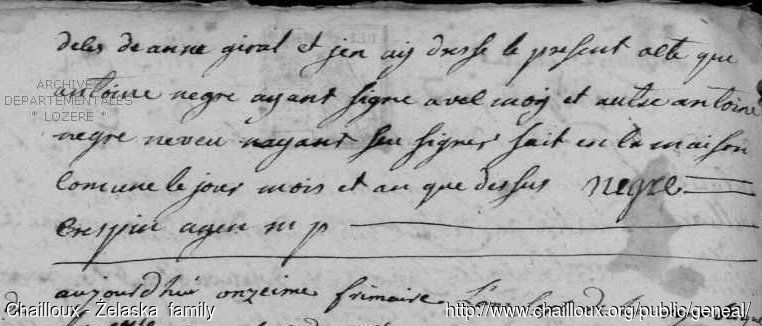 deles de anne giral et jen ay dresse le present acte que
antoine negre ayant signe avec moy et autre antoine
negre neveu nayant seu signer fait en la maison
comune le jour mois et an que dessus negre
Crespin agen m p
aujourdhui onzeime frimaire
ARCHIVES
DEPARTEMENTALES
* LOZERE *
Chailloux - Želaska family
http://www.chailloux.org/public/geneal/